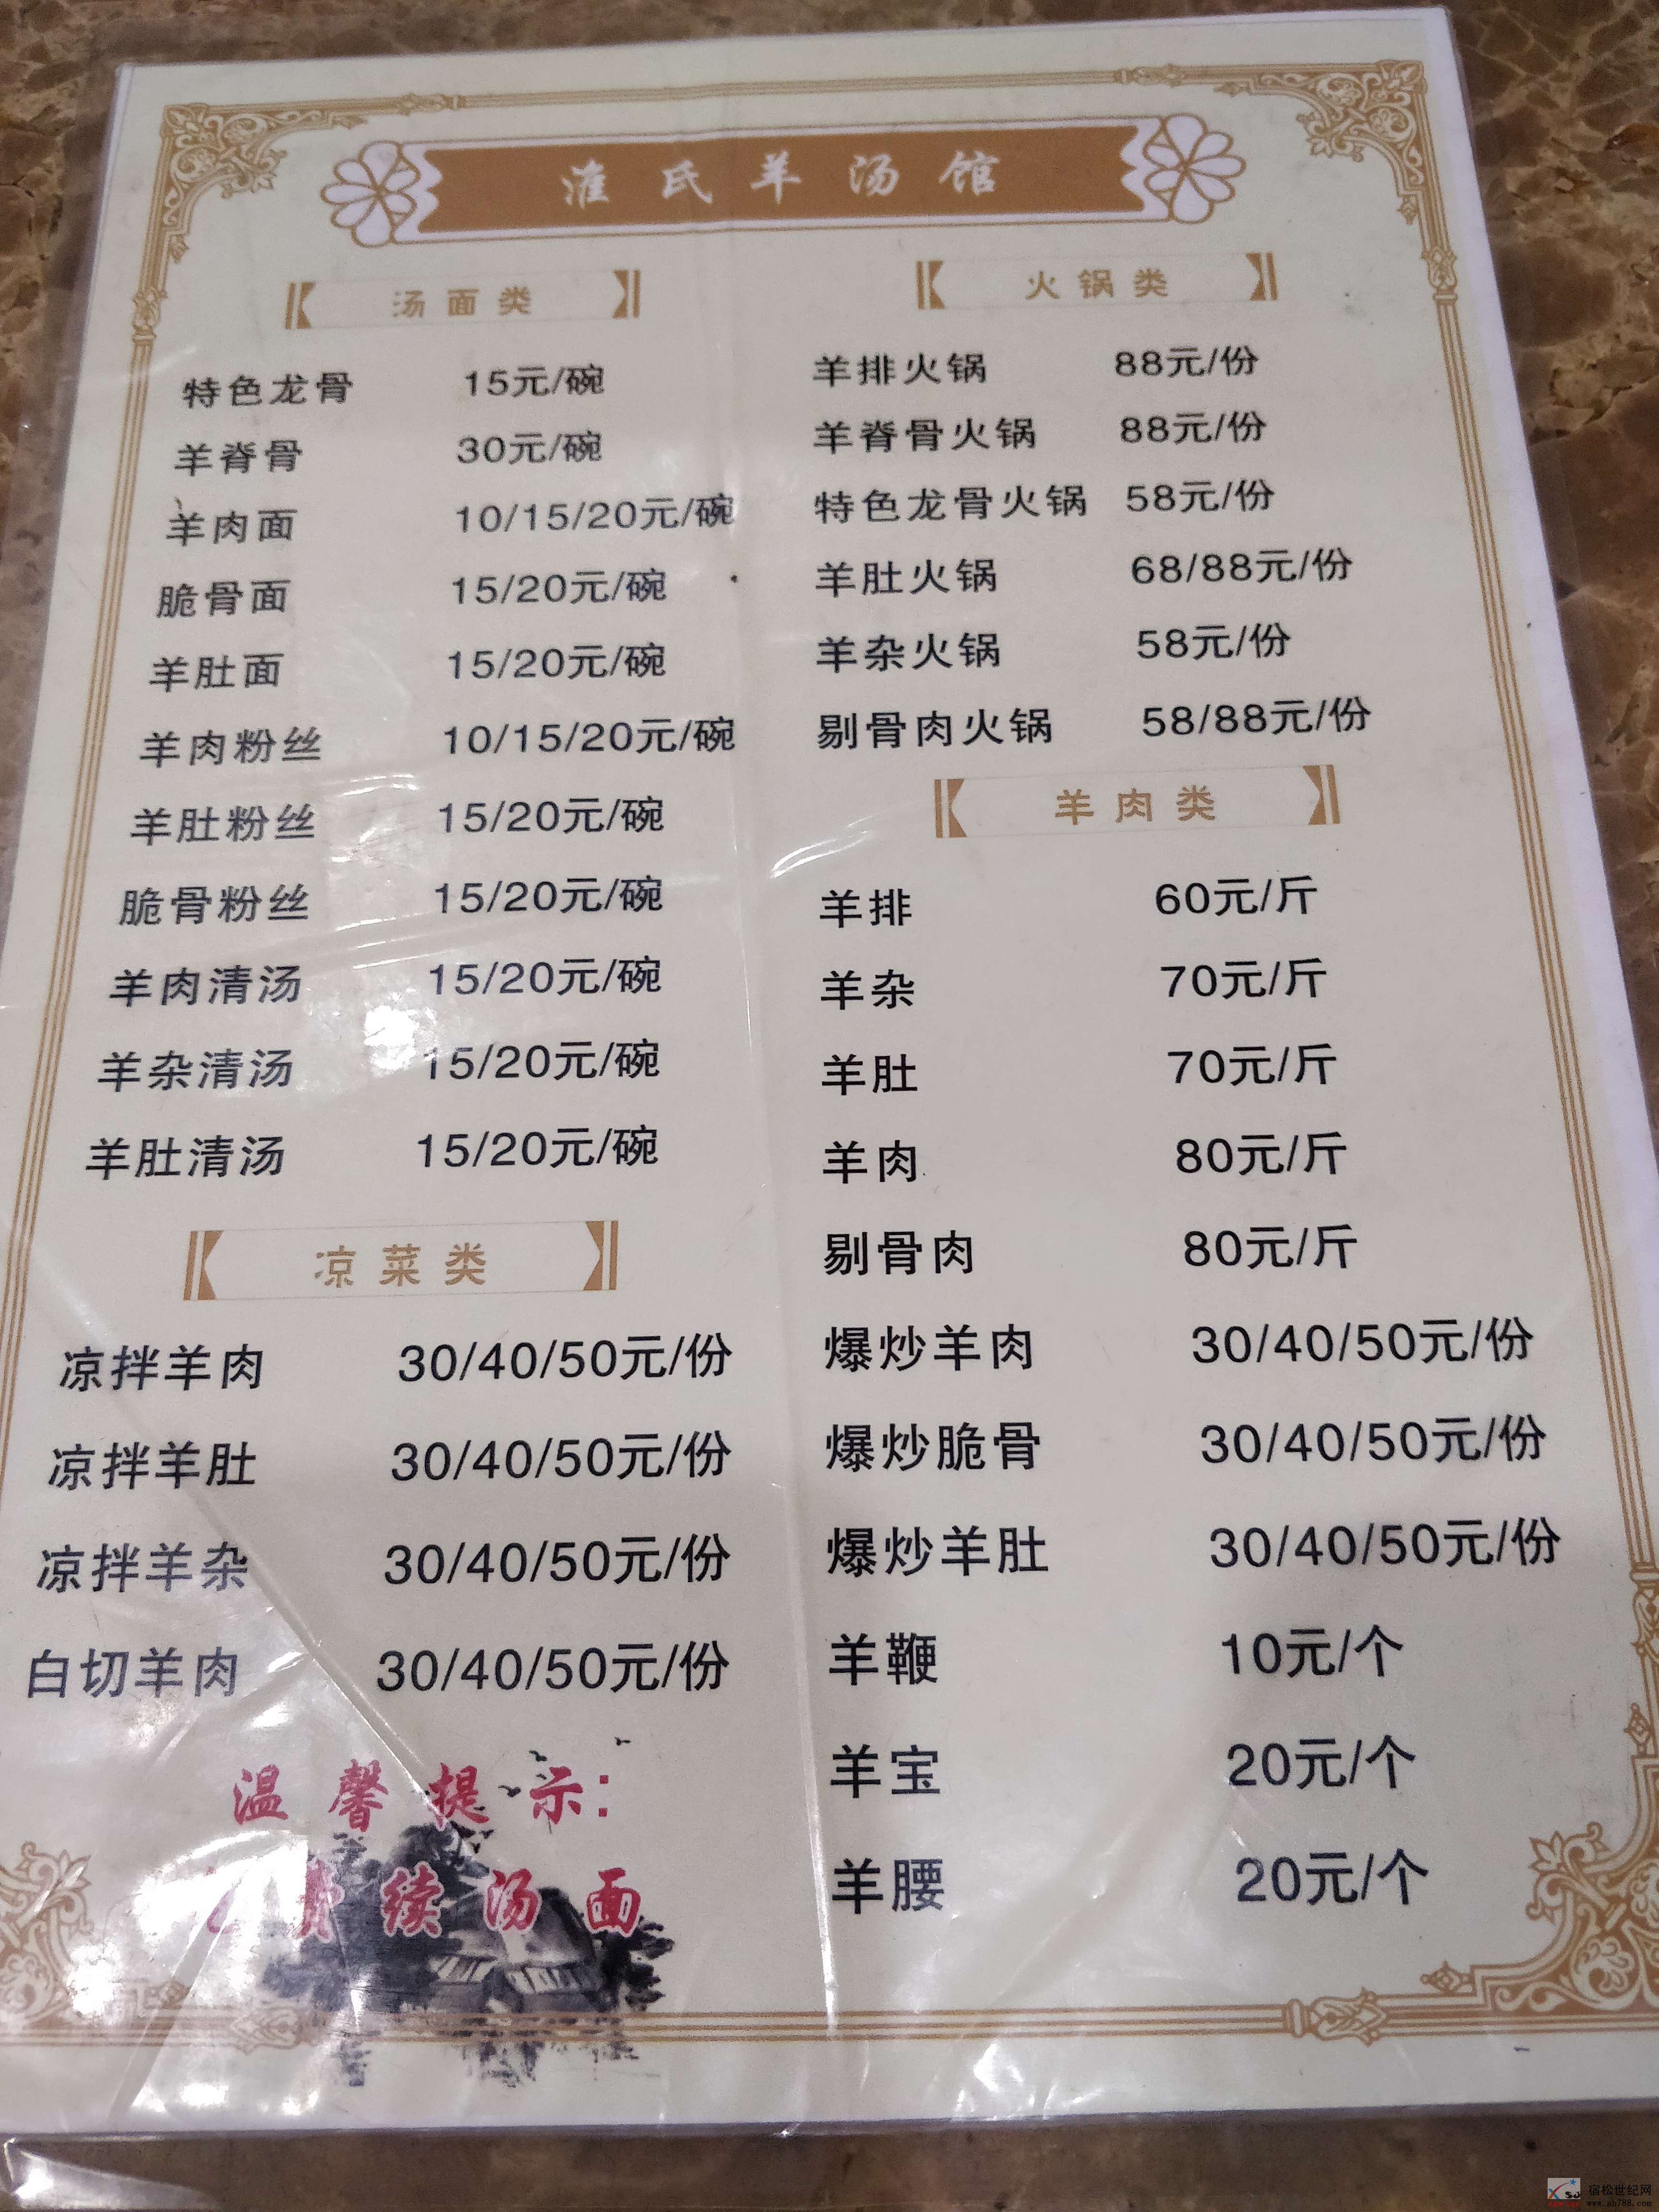 淮氏羊汤馆
汤面类
特色龙骨 15元/碗
羊脊骨 30元/碗
羊肉面 10/15/20元/碗
脆骨面 15/20元/碗
羊肚面 15/20元/碗
羊肉粉丝 10/15/20元/碗
羊肚粉丝 15/20元/碗
脆骨粉丝 15/20元/碗
羊肉清汤 15/20元/碗
羊杂清汤 15/20元/碗
羊肚清汤 15/20元/碗
凉菜类
凉拌羊肉 30/40/50元/份
凉拌羊肚 30/40/50元/份
凉拌羊杂 30/40/50元/份
白切羊肉 30/40/50元/份
温馨提示:
费续汤面
火锅类
羊排火锅 88元/份
羊脊骨火锅 88元/份
特色龙骨火锅 58元/份
羊肚火锅 68/88元/份
羊杂火锅 58元/份
剔骨肉火锅 58/88元/份
羊肉类
羊排 60元/斤
羊杂 70元/斤
羊肚 70元/斤
羊肉 80元/斤
剔骨肉 80元/斤
爆炒羊肉 30/40/50元/份
爆炒脆骨 30/40/50元/份
爆炒羊肚 30/40/50元/份
羊鞭 10元/个
羊宝 20元/个
羊腰 20元/个
宿松世纪网
www.ah788.com